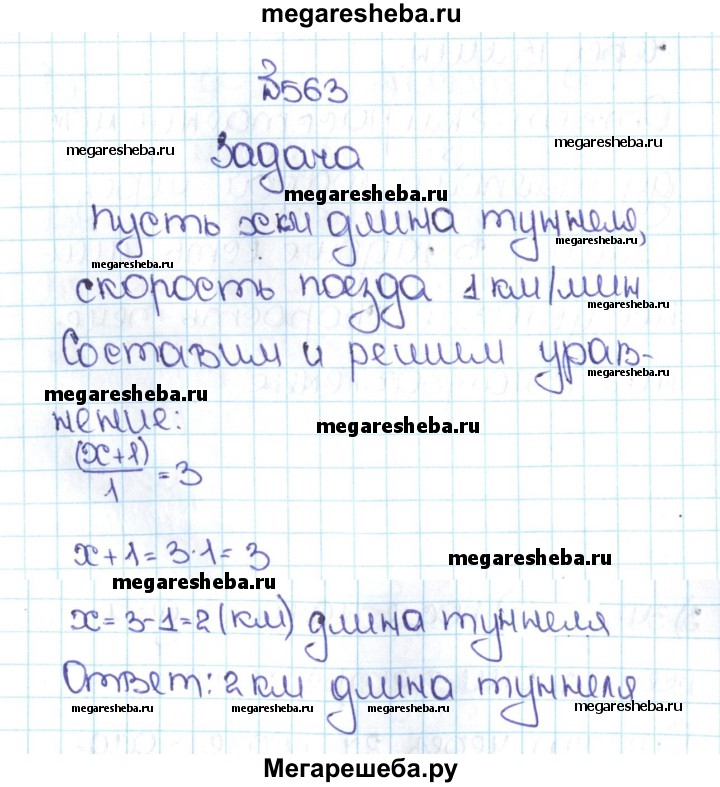 megaresheba.ru
№563
megaresheba.ru
megaresheba.ru
Задача
megaresheba.ru
пусть х км длина туннеля,
megaresheba.ru
megaresheba.ru
скорость поезда 1 км/мин
megaresheba.ru
Составим и решим урав-
megaresheba.ru
megaresheba.ru
нение:
megaresheba.ru
(х+1)/1 = 3
х+1=3·1=3
megaresheba.ru
megaresheba.ru
х=3-1=2(км) длина туннеля
Ответ: 2 км длина туннеля
megaresheba.ru megaresheba.ru megaresheba.ru megaresheba.ru
Мегарешеба.ру